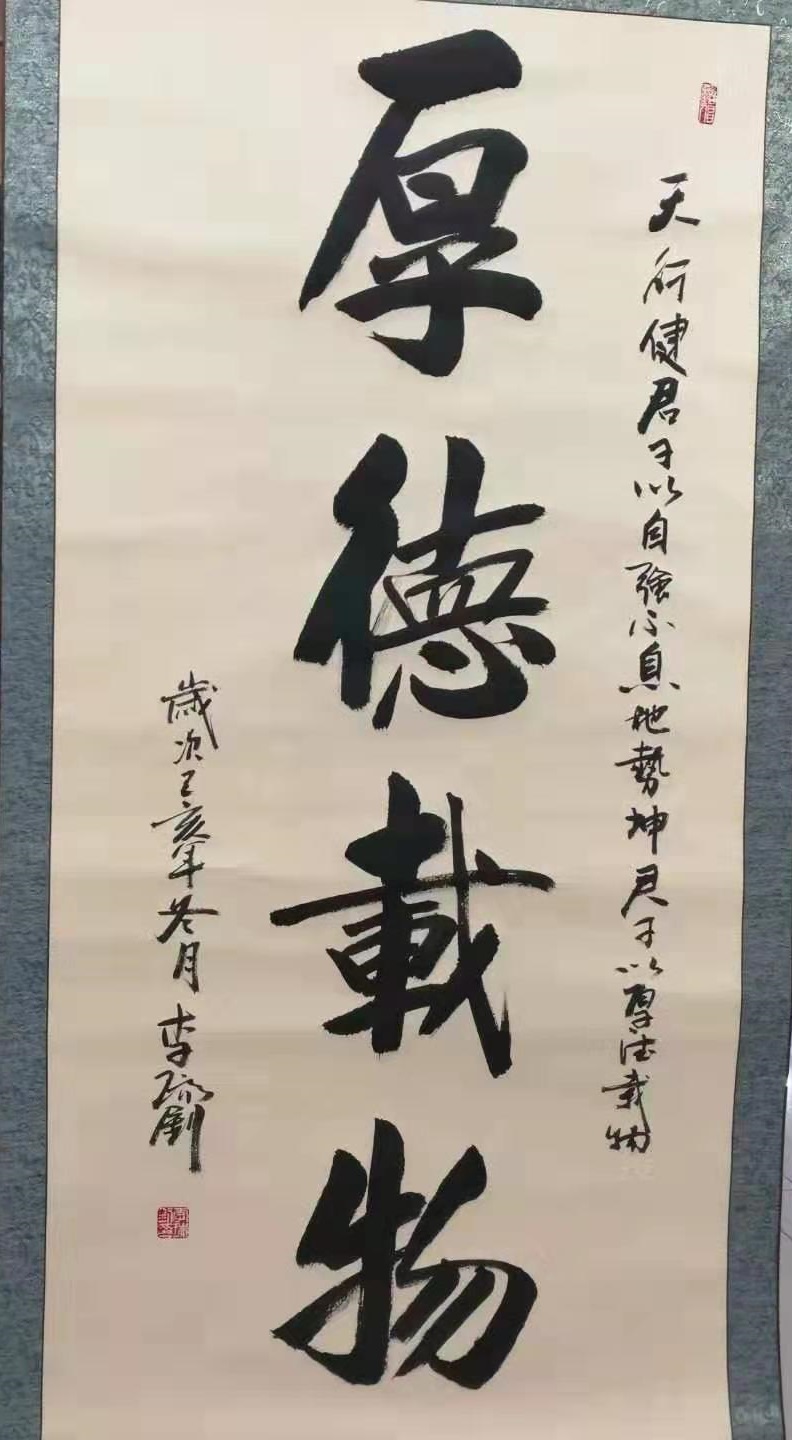 天行健君子以自強不息地勢坤君子以厚德載物
厚德載物
歲次己亥年冬月李